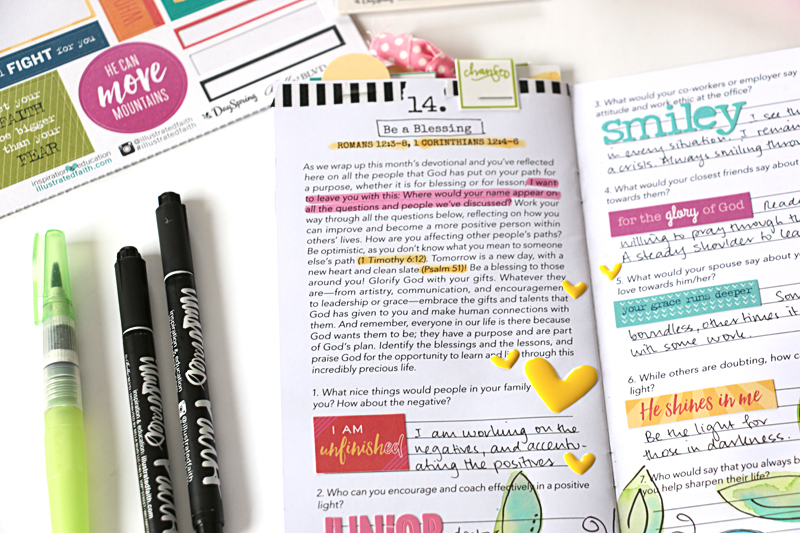 FIGHT for you
HE CAN
move
MOUNTAINS
FAITH
be bigger
than your
FEAR
inspiration education
illustratedfaith.com
@illustratedfaith
DaySpring
BLVD
changed
14.
Be a Blessing
ROMANS 12:3–8, 1 CORINTHIANS 12:4–6
As we wrap up this month's devotional and you've reflected
here on all the people that God has put on your path for
a purpose, whether it is for blessing or for lesson, I want
to leave you with this: Where would your name appear on
all the questions and people we've discussed? Work your
way through all the questions below, reflecting on how you
can improve and become a more positive person within
others' lives. How are you affecting other people's paths?
Be optimistic, as you don't know what you mean to someone
else's path (1 Timothy 6:12). Tomorrow is a new day, with a
new heart and clean slate (Psalm 51)! Be a blessing to those
around you! Glorify God with your gifts. Whatever they
are—from artistry, communication, and encouragement
to leadership or grace—embrace the gifts and talents that
God has given to you and make human connections with
them. And remember, everyone in our life is there because
God wants them to be; they have a purpose and are part
of God's plan. Identify the blessings and the lessons, and
praise God for the opportunity to learn and live through this
incredibly precious life.
1. What nice things would people in your family
you? How about the negative?
I AM
unfinished
I am working on the
negatives, and accentu-
ating the positives
2. Who can you encourage and coach effectively in a positive
light?
JUNIOR
3. What would your co-workers or employer say
attitude and work ethic at the office?
smiley
I see th
in every situation. I remain
a crisis. Always smiling throu
4. What would your closest friends say about
towards them?
for the glory of God
Ready
willing to pray through th
A steady shoulder to lea
5. What would your spouse say about yo
love towards him/her?
your grace runs deeper
Som
boundless, other times it
will some work.
6. While others are doubting, how c
light?
He shines in me
Be the light for
those in darkness.
7. Who would say that you always b
you help sharpen their life?
Illustrated Faith
inspiration & education illustratedfaith.com
Illustrated Faith
inspiration & education
@illustratedfaith